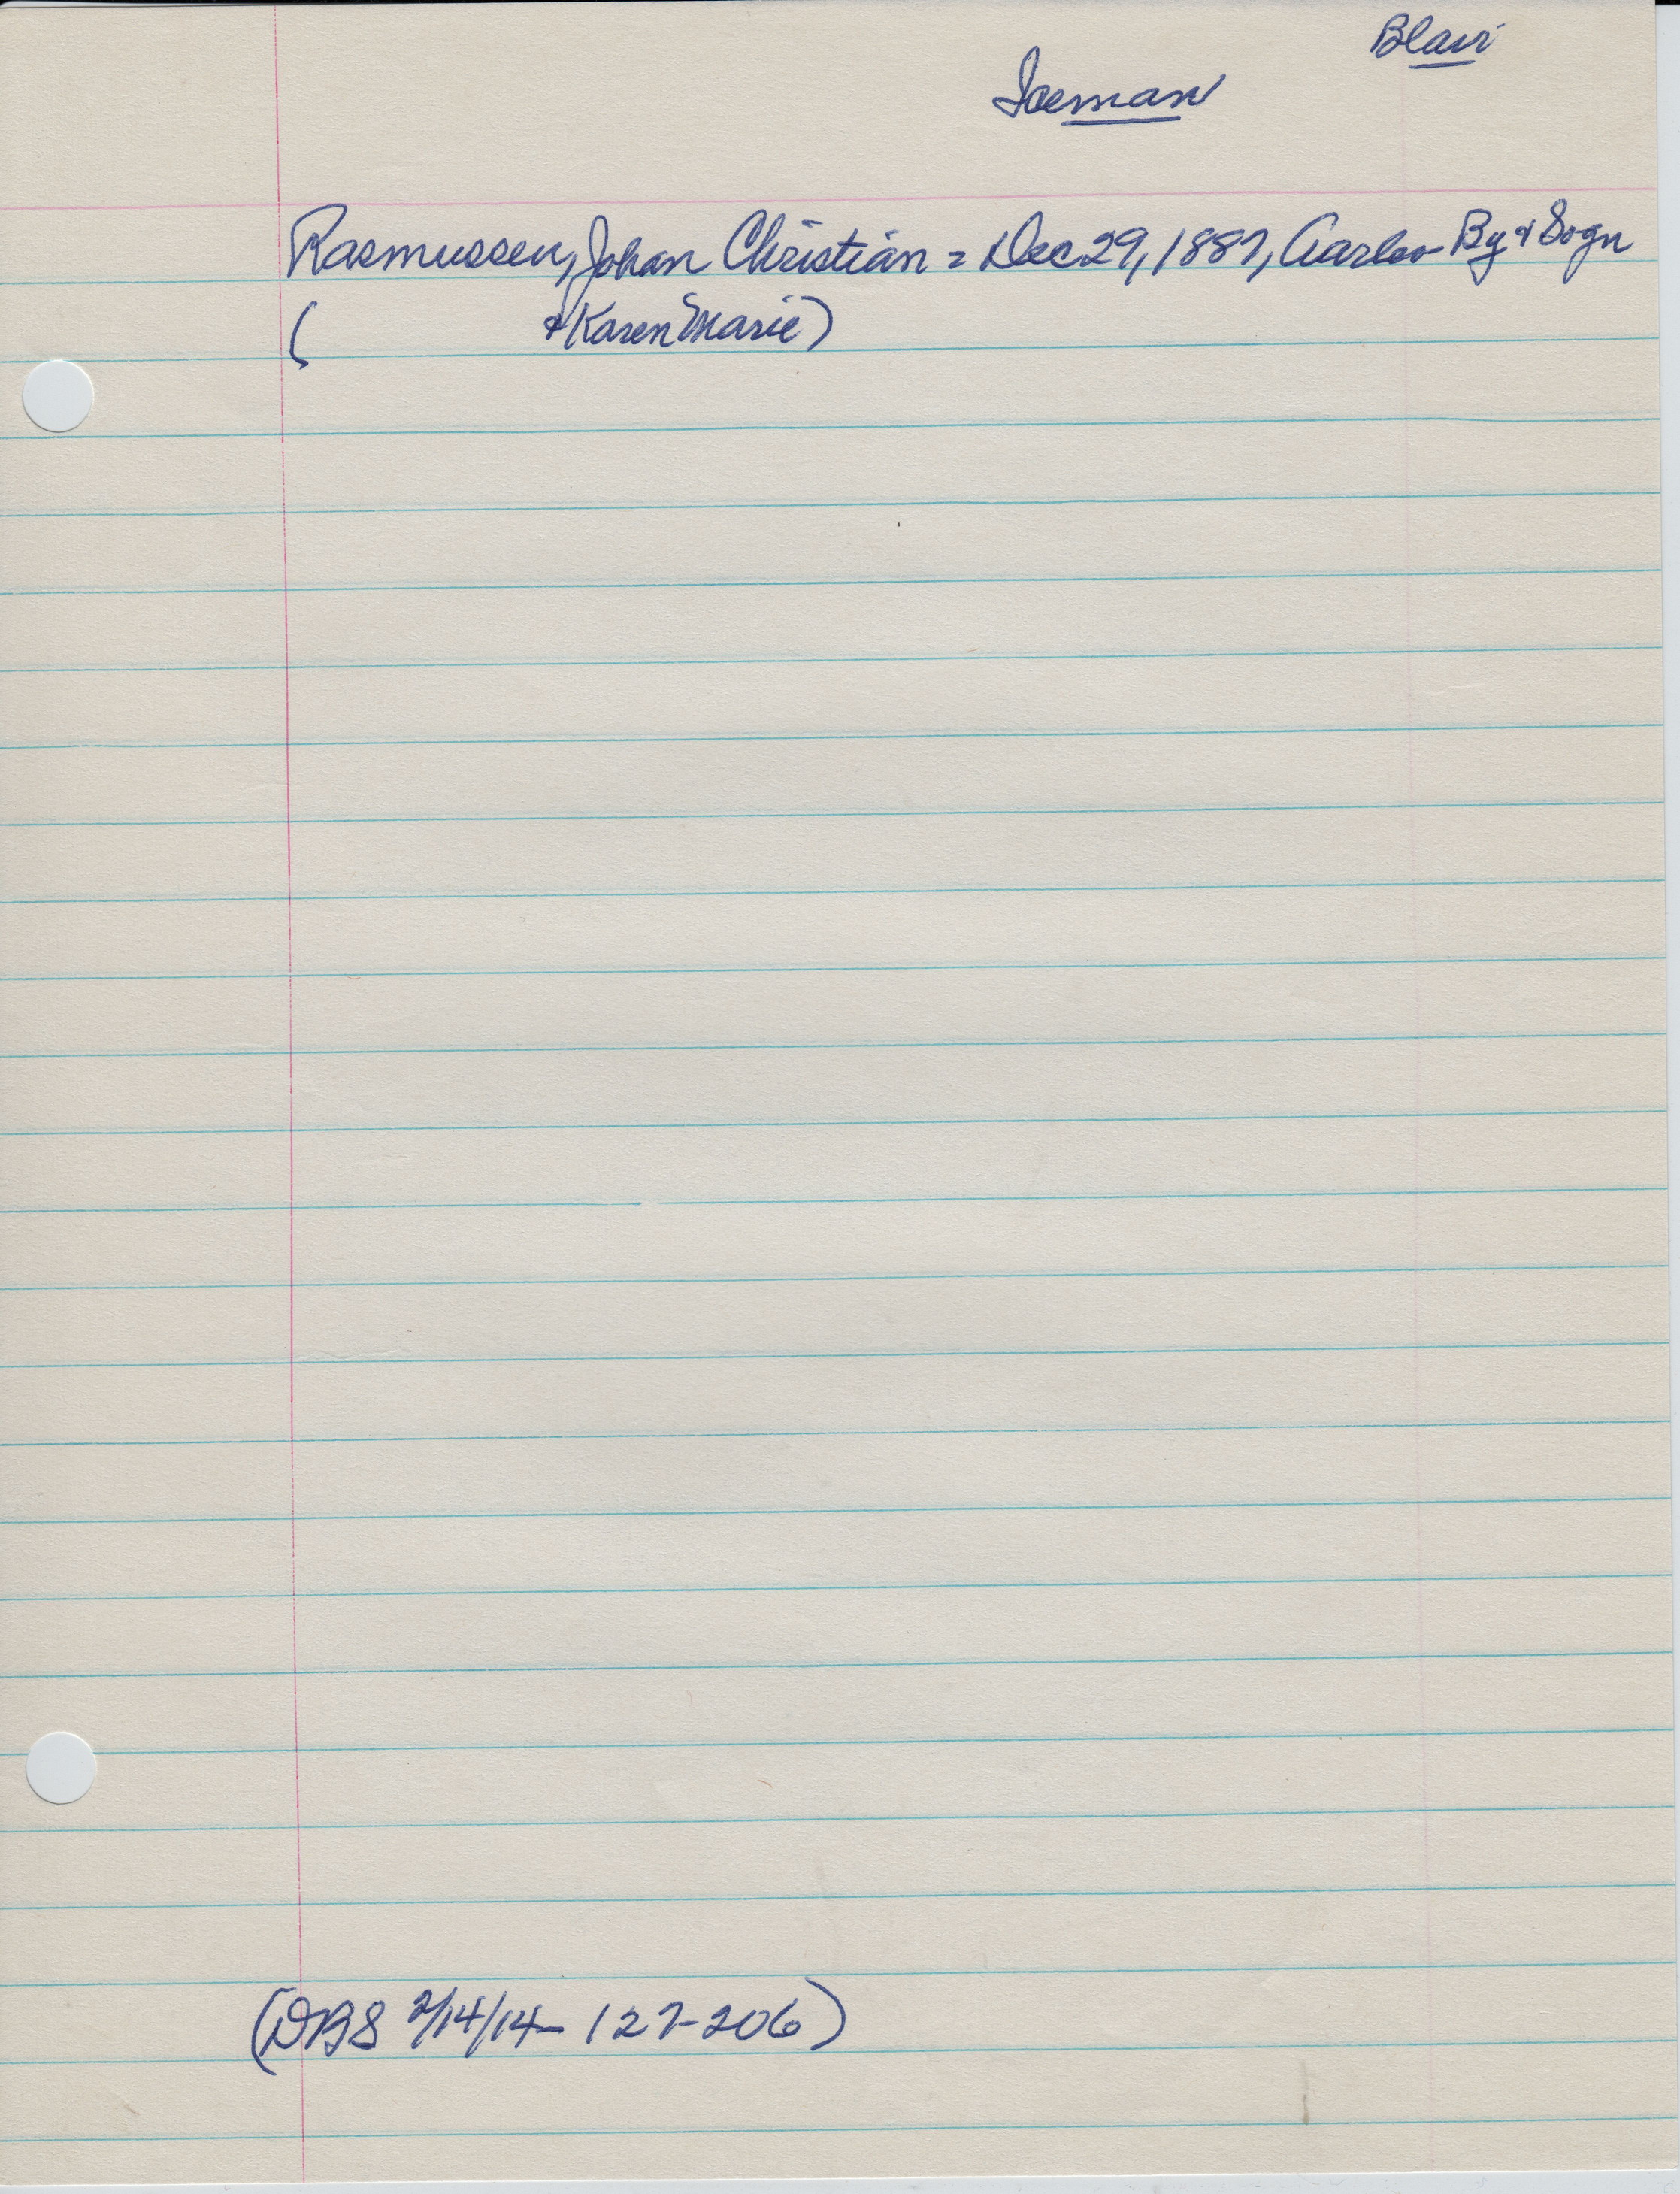 Blair
Iceman
Rasmussen, Johan Christian = Dec 29, 1887, Aarslev By & Sogn
( & Karen Marie)
(DBS 2/14/14 - 127-206)